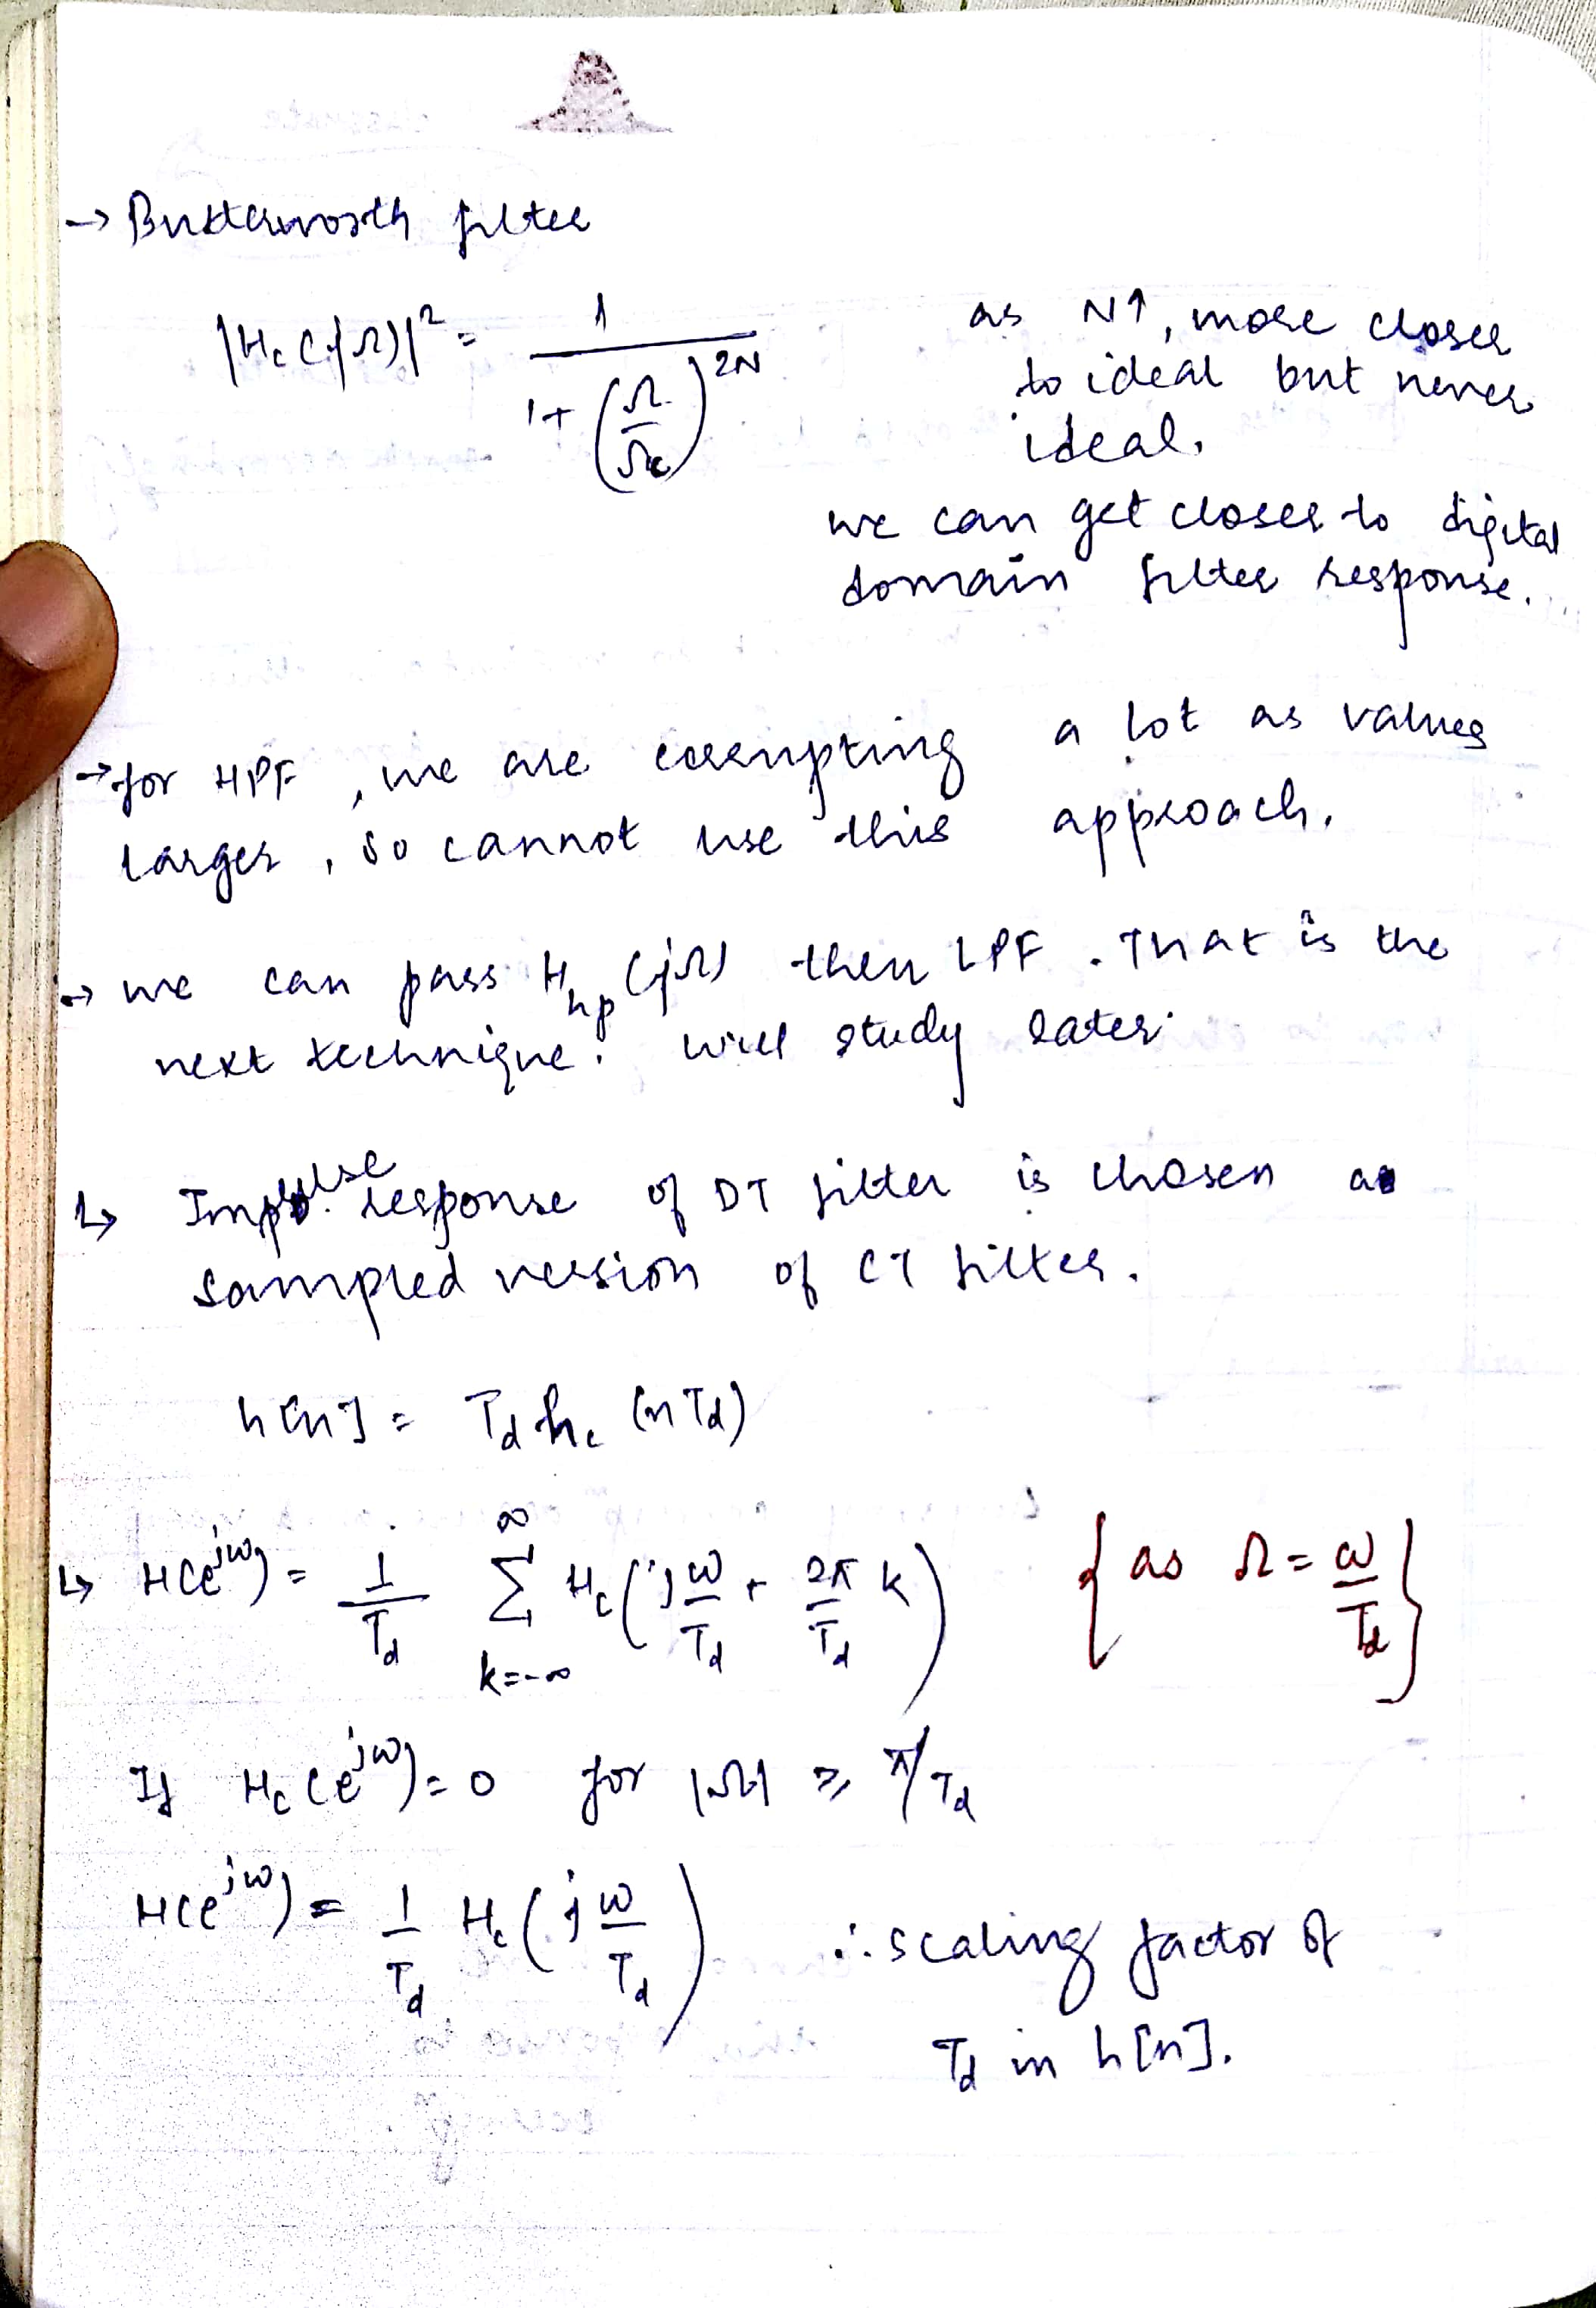 → Butterworth filter
|Hc(jΩ)|² = 1 / (1 + (Ω/Ωc)^2N)
as N↑, more closer
to ideal but never
ideal.
we can get closer to digital
domain filter response.
→ for HPF, we are corrupting a lot as values
larger, so cannot use this approach.
→ we can pass Hhp(jΩ) then LPF. That is the
next technique. will study later.
↳ Impulse response of DT filter is chosen as
sampled version of CT filter.
h[n] = Td hc (nTd)
↳ H(e^jω) = 1/Td ∑_{k=-∞}^{∞} Hc(j ω/Td + 2π/Td k) {as Ω = ω/Td}
If Hc(e^jω) = 0 for |Ω| ≥ π/Td
H(e^jω) = 1/Td Hc(j ω/Td) ∴ scaling factor of
Td in h[n].